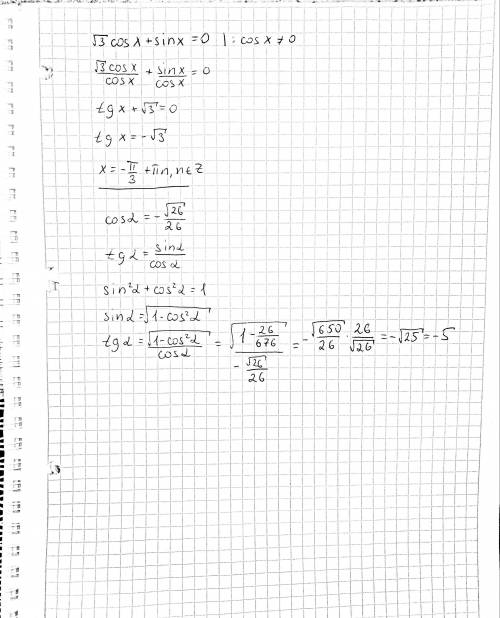 √3 cos x + sin x = 0 | : cos x ≠ 0
√3 cos x / cos x + sin x / cos x = 0
tg x + √3 = 0
tg x = -√3
x = -π/3 + πn, n ∈ Z
cos α = -√26/26
tg α = sin α / cos α
sin²α + cos²α = 1
sin α = √(1-cos²α)
tg α = √(1-cos²α) / cos α = √(1 - 26/676) / (-√26/26) = -√650/26 · 26/√26 = -√25 = -5